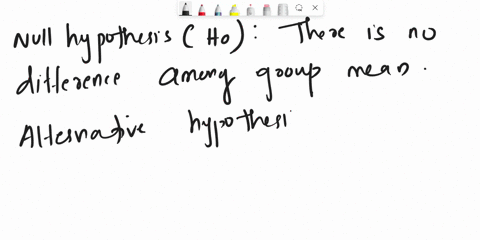 Null hypothesis (Ho): There is no
difference among group mean.
Alternative hypothesi